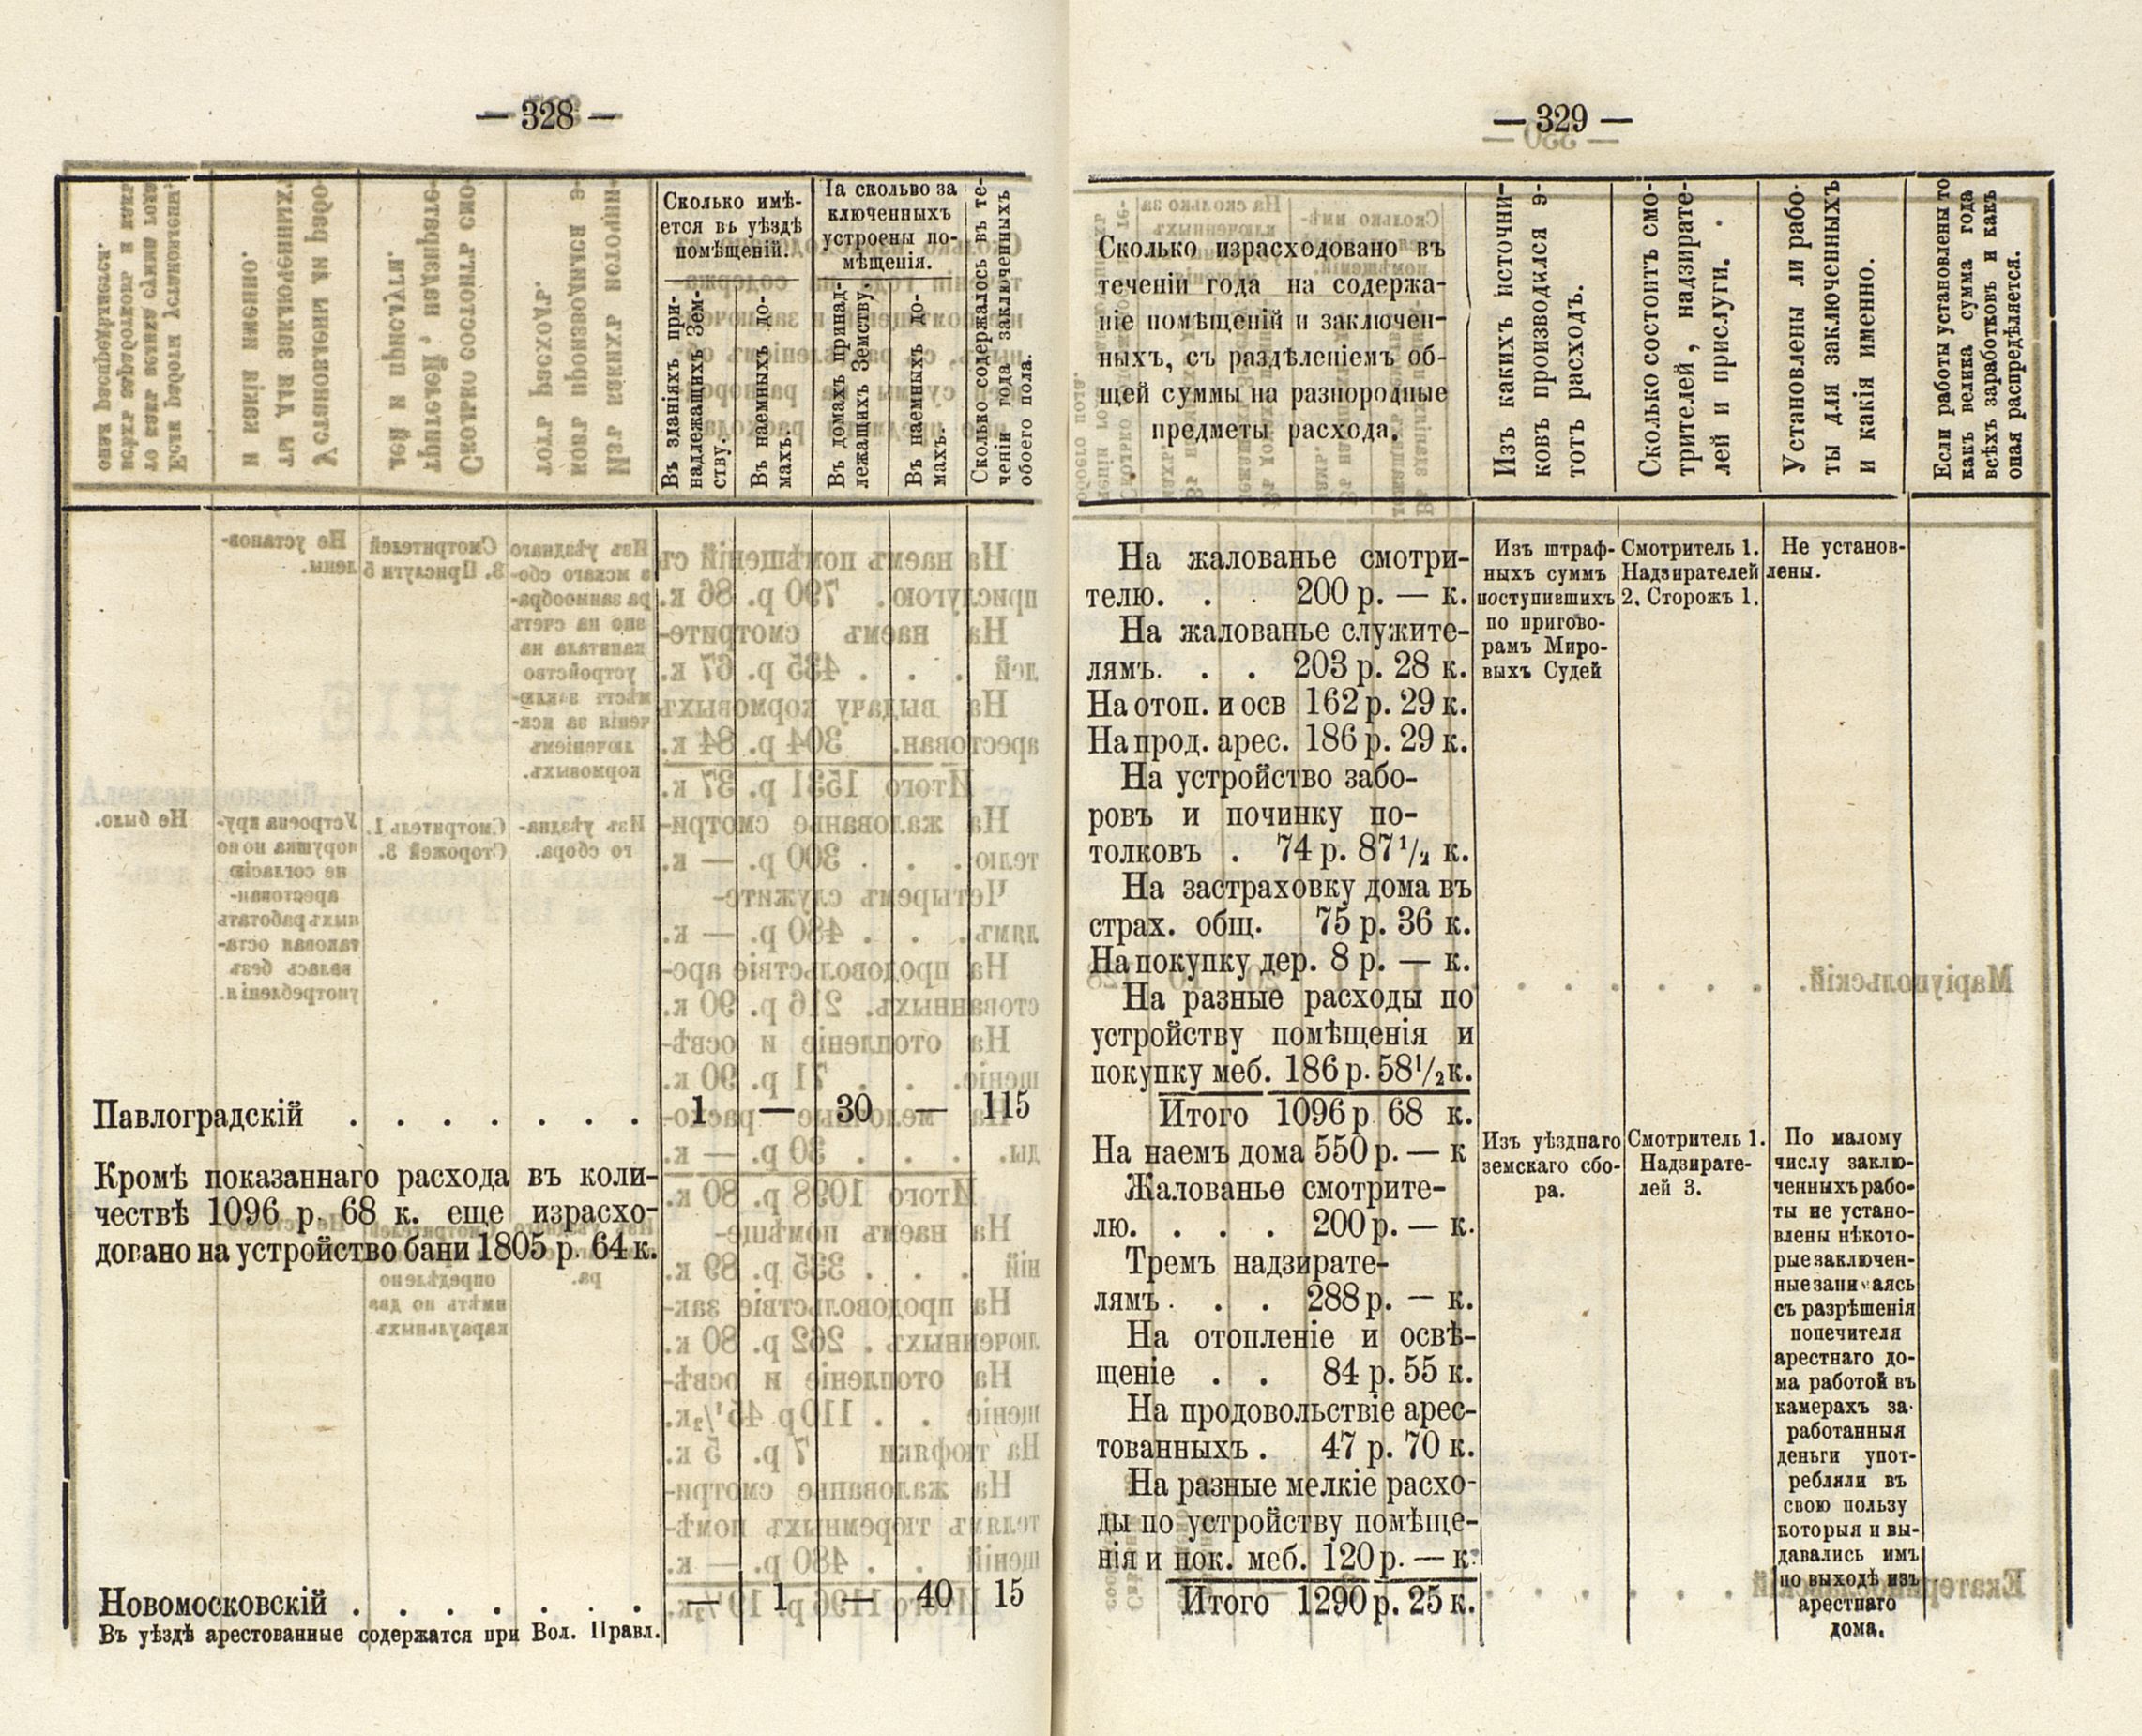 — 328 —
Сколько имѣ-
ется въ уѣздѣ
помѣщеній.
Въ зданіяхъ при-
надлежащихъ Зем-
ству.
Въ наемныхъ до-
махъ.
Іа скольво за
ключенныхъ
устроены по-
мѣщенія.
Въ домахъ принад-
лежащихъ Земству.
Въ наемныхъ до-
махъ.
Сколько содержалось въ те-
ченіи года заключенныхъ
обоего пола.
Павлоградскій . . . . . . . 1 — 30 — 115
Кромѣ показаннаго расхода въ коли-
чествѣ 1096 р. 68 к. еще израсхо-
довано на устройство бани 1805 р. 64 к.
Новомосковскій . . . . . . . — 1 — 40 15
Въ уѣздѣ арестованные содержатся при Вол. Правл.
— 329 —
Сколько израсходовано въ
теченіи года на содержа-
ніе помѣщеній и заключен-
ныхъ, съ раздѣленіемъ об-
щей суммы на разнородные
предметы расхода.
Изъ какихъ источни-
ковъ производился э-
тотъ расходъ.
Сколько состоитъ смо-
трителей, надзирате-
лей и прислуги.
Установлены ли рабо-
ты для заключенныхъ
и какія именно.
Если работы установлены то
какъ велика сумма года
всѣхъ заработковъ и какъ
оная распредѣляется.
На жалованье смотри-
телю. . . 200 р. — к.
На жалованье служите-
лямъ. . . 203 р. 28 к.
На отоп. и осв 162 р. 29 к.
На прод. арес. 186 р. 29 к.
На устройство забо-
ровъ и починку по-
толковъ . 74 р. 87½ к.
На застраховку дома въ
страх. общ. 75 р. 36 к.
На покупку дер. 8 р. — к.
На разные расходы по
устройству помѣщенія и
покупку меб. 186 р. 58½ к.
Итого 1096 р 68 к.
Изъ штраф-
ныхъ суммъ
поступившихъ
по пригово-
рамъ Миро-
выхъ Судей
Смотритель 1.
Надзирателей
2. Сторожъ 1.
Не установ-
лены.
На наемъ дома 550 р. — к
Жалованье смотрите-
лю. . . . 200 р. — к.
Тремъ надзирате-
лямъ . . . 288 р. — к.
На отопленіе и освѣ-
щеніе . . 84 р. 55 к.
На продовольствіе арес-
тованныхъ . 47 р. 70 к.
На разные мелкіе расхо-
ды по устройству помѣще-
нія и пок. меб. 120 р. — к.
Итого 1290 р. 25 к.
Изъ уѣзднаго
земскаго сбо-
ра.
Смотритель 1.
Надзирате-
лей 3.
По малому
числу заклю-
ченныхъ рабо-
ты не устано-
влены нѣкото-
рые заключен-
ные занимаясь
съ разрѣшенія
попечителя
арестнаго до-
ма работой въ
камерахъ за-
работанныя
деньги упот-
ребляли въ
свою пользу
которыя и вы-
давались имъ
по выходѣ изъ
арестнаго
дома.